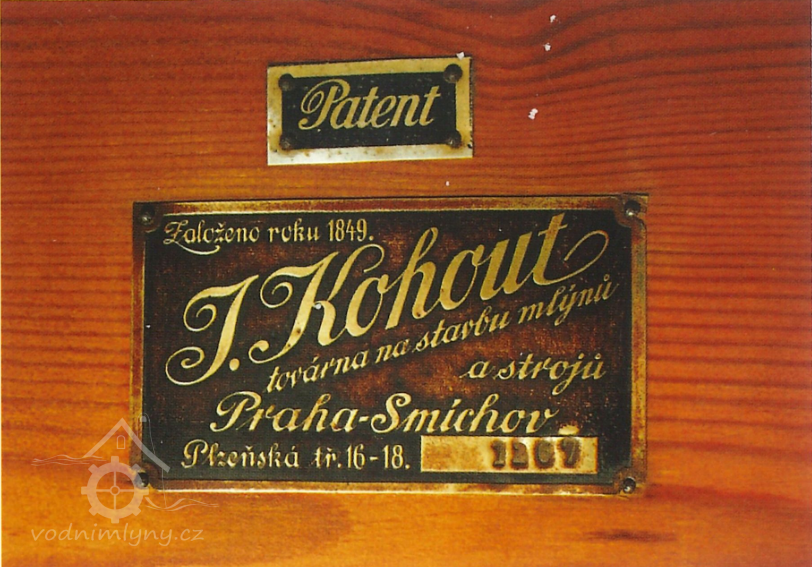 Patent
Založeno roku 1849.
J. Kohout
továrna na stavbu mlýnů
a strojů
Praha-Smíchov
Plzeňská tř. 16-18.
1267
vodnimlyny.cz